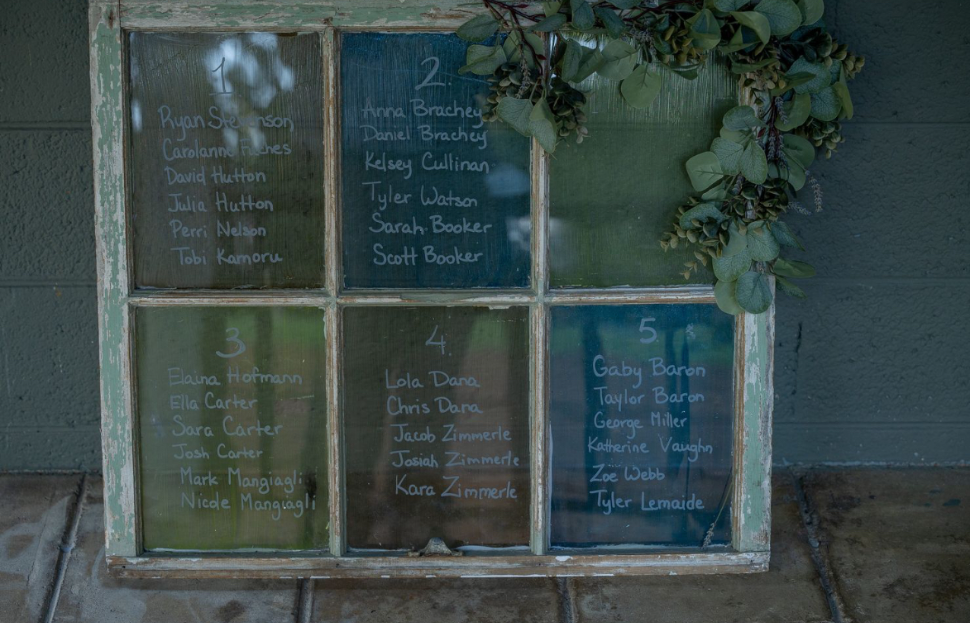 1
Ryan Stevenson
Carolanne
David Hutton
Julia Hutton
Perri Nelson
Tobi Kamoru
2
Anna Brachey
Daniel Brachey
Kelsey Cullinan
Tyler Watson
Sarah Booker
Scott Booker
3
Elaina Hofmann
Ella Carter
Sara Carter
Josh Carter
Mark Mangiagli
Nicole Mangiagli
4.
Lola Dana
Chris Dana
Jacob Zimmerle
Josiah Zimmerle
Kara Zimmerle
5.
Gaby Baron
Taylor Baron
George Miller
Katherine Vaughn
Zoe Webb
Tyler Lemaide